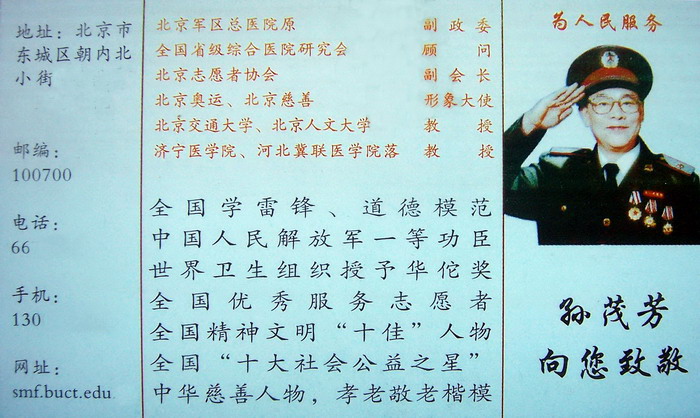 地址：北京市
东城区朝内北
小街
邮编：
100700
电话：
66
手机：
130
网址：
smf.buct.edu
北京军区总医院原 副政委
全国省级综合医院研究会 顾问
北京志愿者协会 副会长
北京奥运、北京慈善 形象大使
北京交通大学、北京人文大学 教授
济宁医学院、河北冀联医学院落 教授
全国学雷锋、道德模范
中国人民解放军一等功臣
世界卫生组织授予华佗奖
全国优秀服务志愿者
全国精神文明“十佳”人物
全国“十大社会公益之星”
中华慈善人物，孝老敬老楷模
为人民服务
孙茂芳
向您致敬